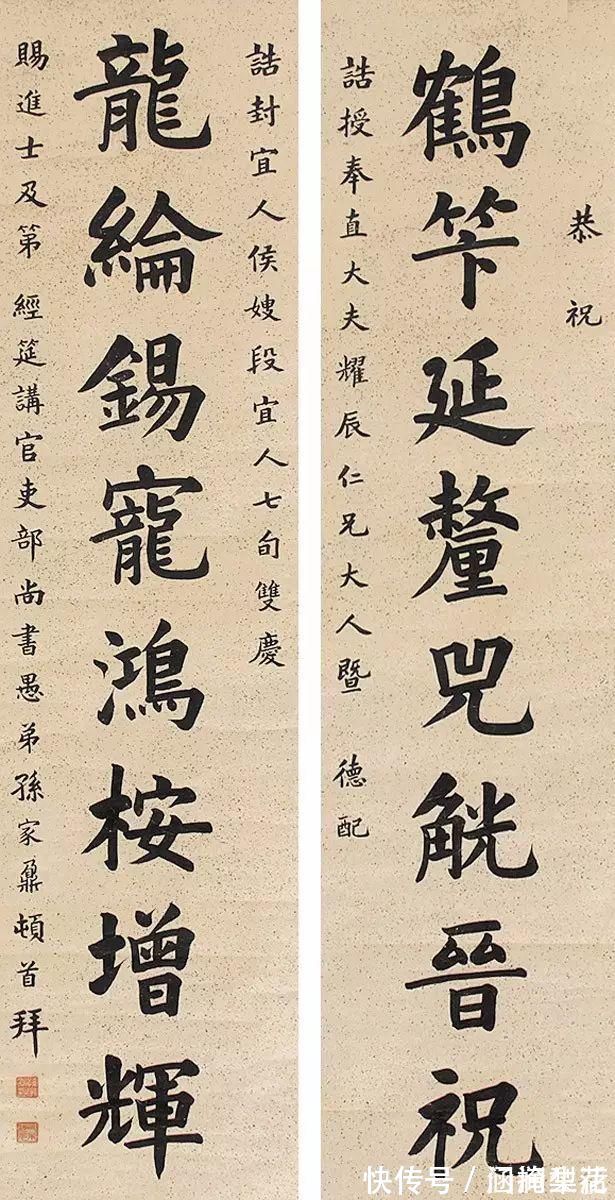 恭祝
鶴笇延釐兕觥晉祝
誥授奉直大夫耀辰仁兄大人暨 德配
誥封宜人侯嫂段宜人七旬雙慶
龍綸錫寵鴻桉增輝
賜進士及第 經筵講官吏部尚書愚弟孫家鼐頓首拜
快传号／涵